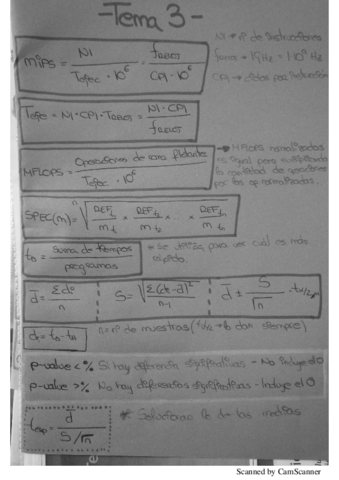 -Tema 3-
MIPS = NI / (Tejec · 10^6) = freloj / (CPI · 10^6)
NI → nº de instrucciones
CPI → ciclos por instrucción
Tejec = NI · CPI · Treloj = NI · CPI / freloj
MFLOPS = Operaciones de coma flotante / (Tejec · 10^6)
→ MFLOPS normalizados
es igual pero multiplicando
la cantidad de operaciones
por las op normalizadas.
SPEC(m) = n√(REF t1 / m t1 × REF t2 / m t2 × ... × REF tn / m tn)
= suma de tiempos / programas
* Se utiliza para ver cuál es más
rápido.
d̄ = Σdi / n
S = √(Σ(di - d̄)² / (n-1))
d̄ ± S / √n · tα/2
n = nº de muestras (tα/2 → lo dan siempre)
p-value < % Si hay diferencias significativas - No incluye el 0
p-value > % No hay diferencias significativas - Incluye el 0
texp = d̄ / (S/√n)
de las medias
Scanned by CamScanner